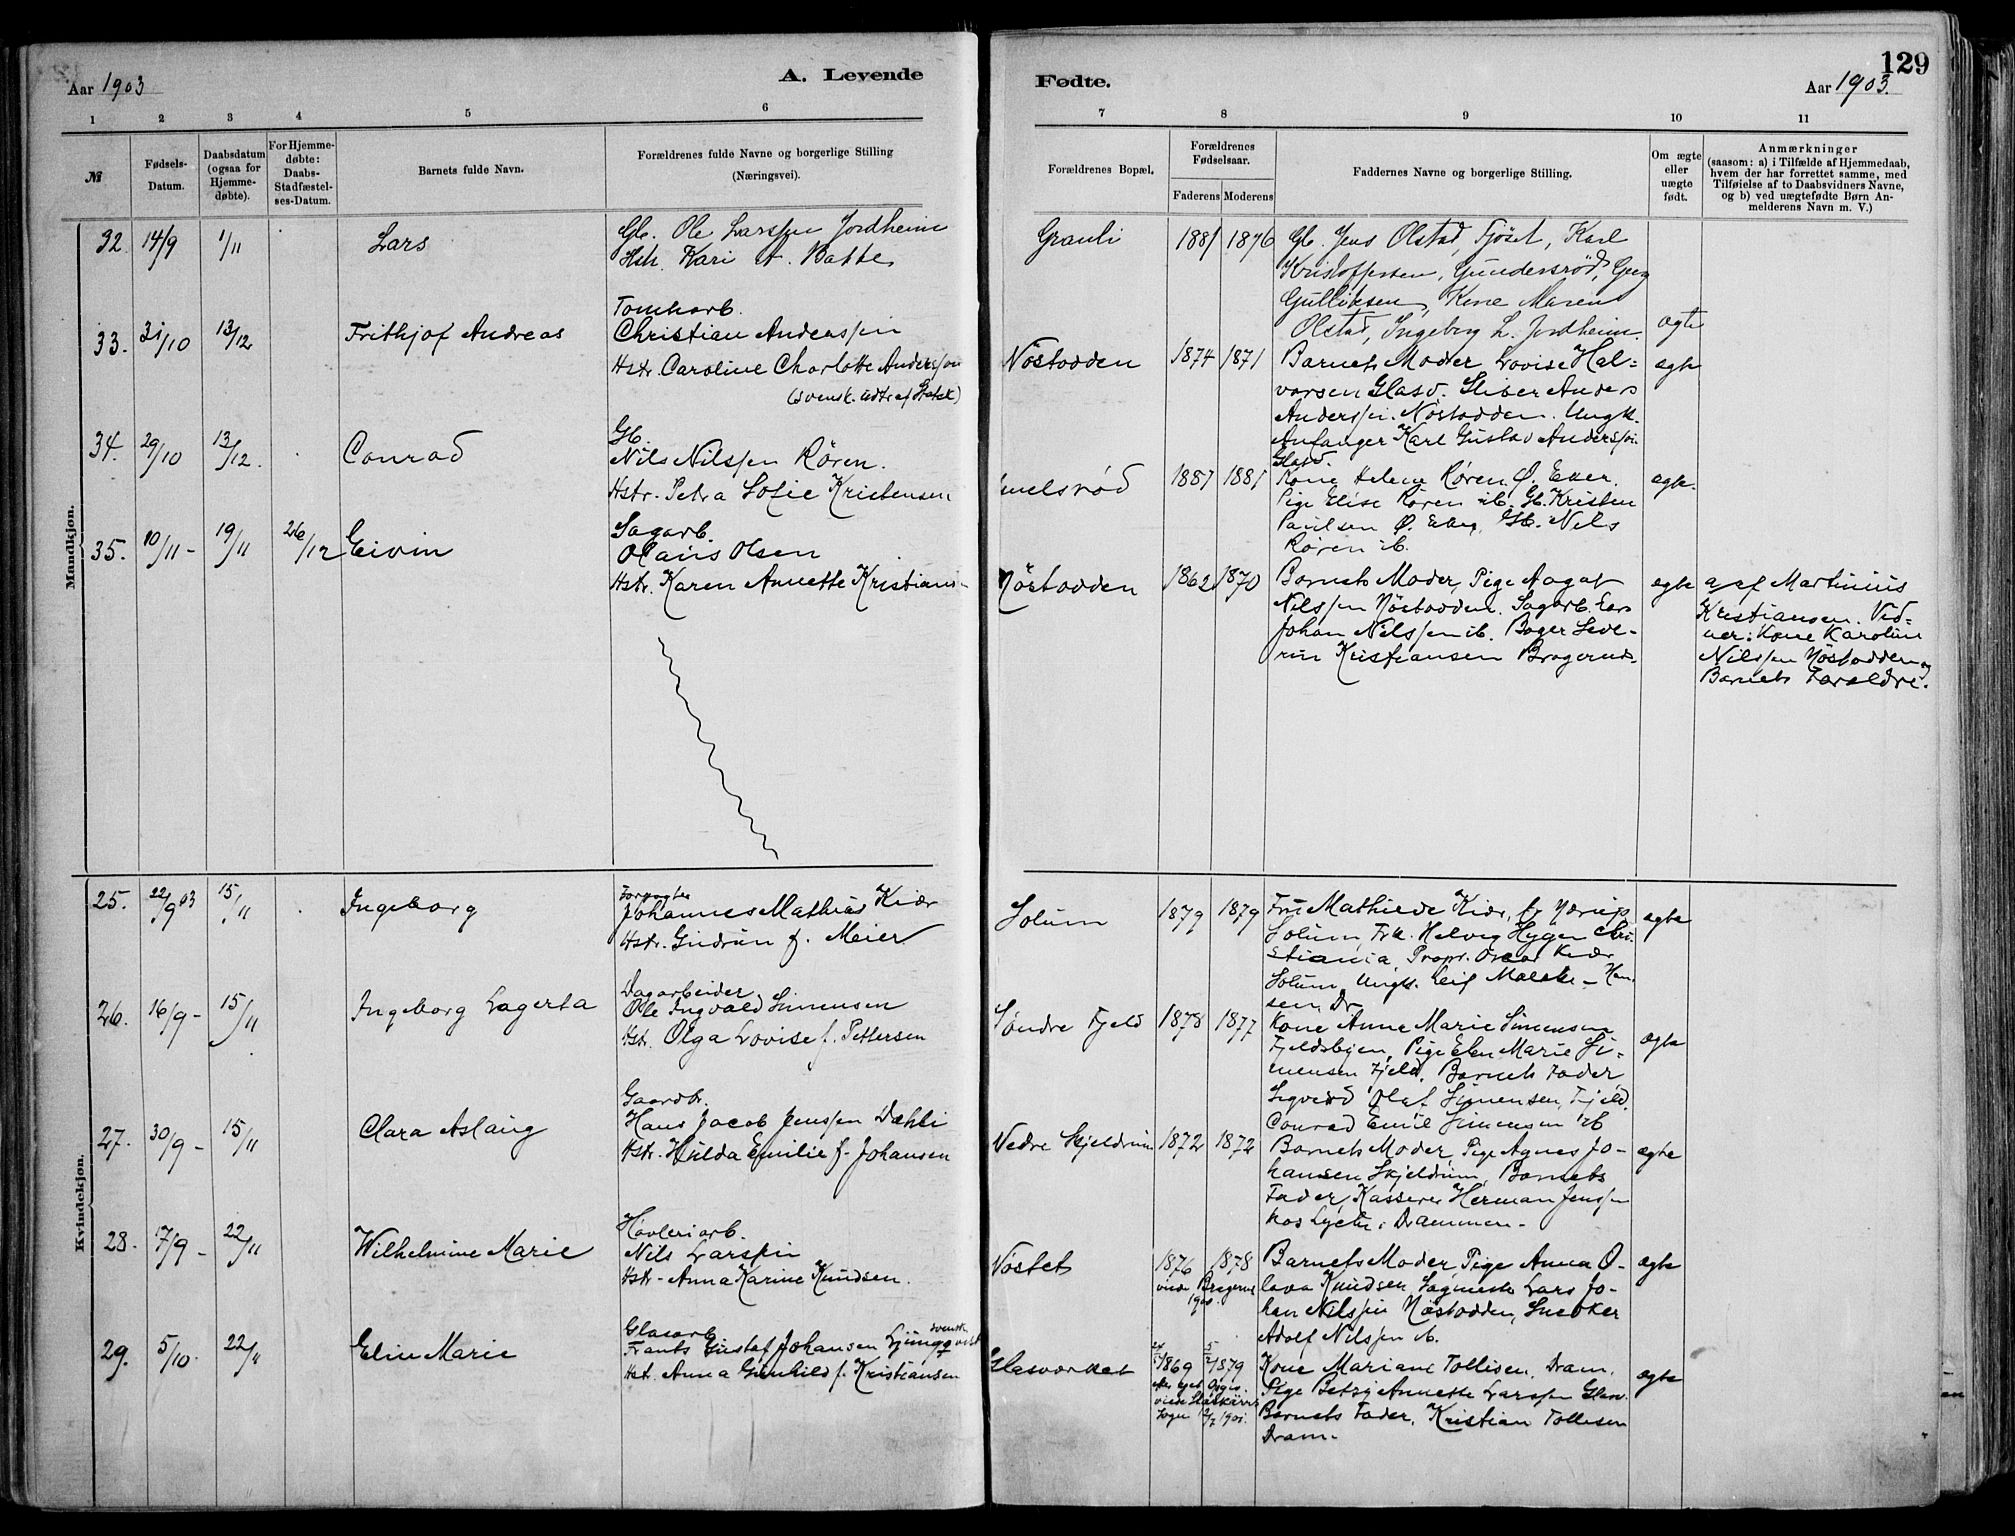 Aar 1903
A. Levende
Fødte.
Aar 1903.
129
1 2 3 4 5 6 7 8 9 10 11
№
Fødsels-
Datum.
Daabsdatum
(ogsaa for
Hjemme-
døbte).
For Hjemme-
døbte:
Daabs-
Stadfæstel-
ses-Datum.
Barnets fulde Navn.
Forældrenes fulde Navne og borgerlige Stilling
(Næringsvei).
Forældrenes Bopæl.
Forældrenes
Fødselsaar.
Faderens Moderens
Faddernes Navne og borgerlige Stilling.
Om ægte
eller
uægte
født.
Anmærkninger
(saasom: a) i Tilfælde af Hjemmedaab,
hvem der har forrettet samme, med
Tilføielse af to Daabsvidners Navne,
og b) ved uægtefødte Børn An-
melderens Navn m. V.)
Mandkjøn.
32. 14/9 1/11 Lars
Gb. Ole Larssen Jordheim
Hstr. Kari A. Bakke
Granli 1881 1876
Gb. Jens Olstad, Fjøset, Karl
Kristoffersen, Gundersrød, Georg
Gulliksen, Kone Maren
Olstad, Ingeborg L. Jordheim.
ægte
33. 31/10 13/12 Frithjof Andreas
Tomtarb.
Christian Anderssen
Hstr. Caroline Charlotte Anderssen
(svensk. udtr af Statsk)
Nøstodden 1874 1871
Barnets Moder, Lovise Hal-
vorsen Glasv. Sliber Anders
Anderssen. Nøstodden. Ungk.
Anfanger Karl Gustav Anderssen
Glasv.
ægte
34. 29/10 13/12. Conrad
Gb.
Nils Nilssen Røren.
Hstr. Petra Sofie Kristensen
melsrød 1881 1881
Kone Helene Røren Ø. Eker.
Pige Elise Røren ib. Gb. Kristen
Paulsen Ø. Eker, Gb. Nils
Røren ib.
ægte.
35. 10/11 - 19/11 26/12 Eivin
Sagarb.
Olaus Olsen
Hstr. Karen Annette Kristians-
Nøstodden 1862 1870
Barnets Moder, Pige Aagot
Nilssen Nøstodden. Sagarb. Lars
Johan Nilssen ib. Bager Seve-
rin Kristiansen Bragernes.
ægte
a af Martinius
Kristiansen. Vid-
ner: Kone Karoline
Nilssen Nøstodden og
Barnets Forældre.
Kvindekjøn.
25. 22/9 03 15/11 Ingeborg
Forpagter
Johannes Mathias Kiær
Hstr. Gudrun f. Meier
Solum 1879 1879
Fru Mathilde Kiær, f.
Solum, Frk. Helvig Hygen Chri-
stiania, Propr. Oscar Kiær
Solum, Ungk. Leif Maeske - Han-
sen, Dr.
ægte
26. 16/9 - 15/11 Ingeborg Lagerta
Dagarbeider
Ole Ingvald Simensen
Hstr. Olga Lovise f. Pettersen
Søndre Fjeld 1878 1877
Kone Anne Marie Simensen
Fjeldsbyen, Pige Elen Marie Si-
mensen Fjeld. Barnets Fader
Sigverd Olaf Simensen, Fjeld.
Conrad Emil Simensen ib
ægte
27. 30/9 - 15/11 Clara Aslaug
Gaardbr.
Hans Jacob Jenssen Dæhli
Hstr. Hulda Emilie f. Johansen
Nedre Skjeldrum 1872 1872
Barnets Moder, Pige Agnes Jo-
hansen Skjeldrum, Barnets
Fader, Kasserer Herman Jenssen
hos Lyche i Drammen -
ægte
28. 17/9 - 22/11 Wilhelmine Marie
Høvleriarb.
Nils Larssen
Hstr. Anna Karine Knudsen.
Nøstet 1876 1878
viede Bragernes
1900.
Barnets Moder, Pige Anna O-
lava Knudsen, Sagmester Lars Jo-
han Nilssen Nøstodden, Snedker
Adolf Nilssen ib.
ægte
29. 5/10. 22/11 Elin Marie
Glasarb.
Frants Gustaf Johansen Ljungqvist svensk
Hstr. Anna Gunhild f. Kristiansen
Glasværket 1869 1879
efter eget Opgiv.
Sogn 2/7 1901.
Kone Mariane Tollisen. Dram.
Pige Betzy Annette Larssen Glasv.
Barnets Fader, Kristian Tollisen
Dram.
ægte